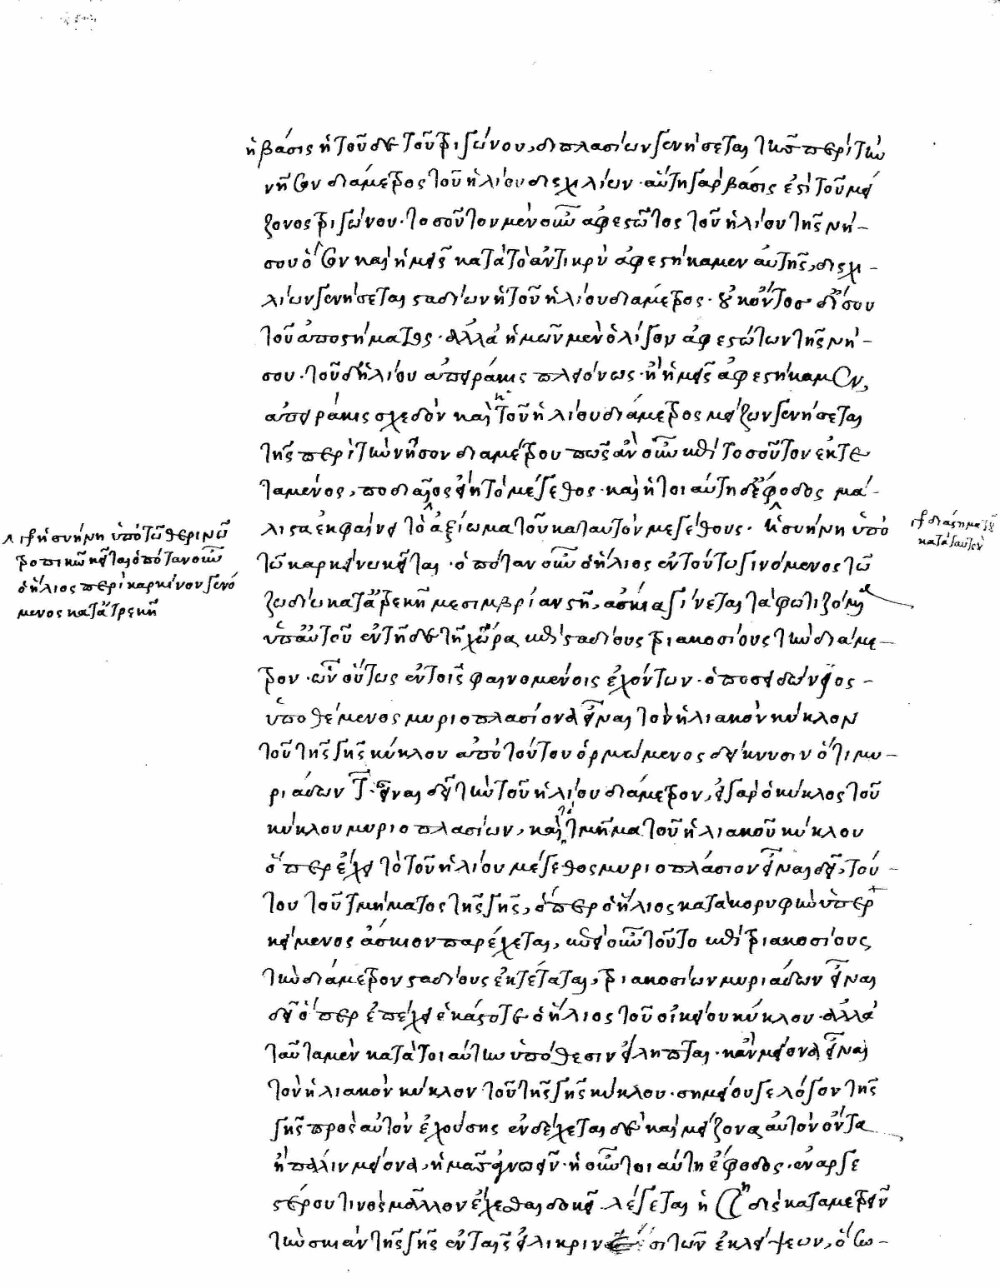 ἡ βάσις ἡ τοῦδε τοῦ τριγώνου, διπλασίων γενήσεται τῆς περὶ τὴν
νῆσον διάμετρος τοῦ ἡλίου δισχιλίων· αὕτη γὰρ βάσις ἐστὶ τοῦ μεί
ζονος τριγώνου· τοσοῦτον μὲν οὖν ἀφεστῶτος τοῦ ἡλίου τῆς νή-
σου ὅσον καὶ ἡμεῖς κατὰ τὸ ἀντικρὺ ἀφεστήκαμεν αὐτῆς, δισχι-
λίων γενήσεται σταδίων ἡ τοῦ ἡλίου διάμετρος· οὐκ ὄντος δὲ ἴσου
τοῦ ἀποστήματος· ἀλλὰ ἡμῶν μὲν ὀλίγον ἀφεστώτων τῆς νή-
σου· τοῦ δὲ ἡλίου ἀπειράκις πλείονως· ἢ ἡμεῖς ἀφεστήκαμεν,
ἀπειράκις σχεδὸν καὶ ἡ τοῦ ἡλίου διάμετρος μείζων γενήσεται
τῆς περὶ τὴν νῆσον διαμέτρου πῶς ἂν οὖν ἐπὶ τοσοῦτον ἐκτε
ταμένος, ποδιαῖος εἴη τὸ μέγεθος· καὶ ἡ τοιαύτη δὲ ἔφοδος μά-
λιστα ἐκφαίνει τὸ ἀξίωμα τοῦ κατ αυτὸν μεγέθους· ἡ συήνη ὑπὸ
τῷ καρκίνῳ κεῖται· ὁπόταν οὖν ὁ ἥλιος ἐν τούτῳ γινόμενος τῷ
ζωδίῳ κατ ἀτρεκῆ μεσημβρίαν στῇ, ἄσκια γίνεται τὰ φωτιζόμενα
ὑπ αὐτοῦ ἐν τῇδε τῇ χώρα ἐπὶ σταδίους τριακοσίους τὴν διάμε-
τρον· ὧν οὕτως ἐν τοῖς φαινομένοις ἐχόντων· ὁ ποσειδώνιος-
ὑποθέμενος μυριοπλασίονα εἶναι τὸν ἡλιακὸν κύκλον
τοῦ τῆς γῆς κύκλου ἀπὸ τούτου ὁρμώμενος δείκνυσιν ὅτι μυ-
ριάδων τ εἶναι δεῖ τὴν τοῦ ἡλίου διάμετρον, εἰ γὰρ ὁ κύκλος τοῦ
κύκλου μυριοπλασίων, καὶ τὸ τμῆμα τοῦ ἡλιακοῦ κύκλου
ὅπερ ἐπέχει τὸ τοῦ ἡλίου μέγεθος μυριοπλάσιον εἶναι δεῖ, τού-
του τοῦ τμήματος τῆς γῆς, ὅπερ ὁ ἥλιος κατὰ κορυφὴν ὑπερ
κείμενος ἄσκιον παρέχεται, ἐπεὶ οὖν τοῦτο ἐπὶ τριακοσίους
τὴν διάμετρον σταδίους ἐκτέταται, τριακοσίων μυριάδων εἶναι
δεῖ ὅπερ ἐπέχει ἑκάστοτε· ὁ ἥλιος τοῦ οἰκείου κύκλου· ἀλλὰ
ταῦτα μὲν κατὰ τοιαύτην ὑπόθεσιν εἴληπται· κἂν μείονα εἶναι
τὸν ἡλιακὸν κύκλον τοῦ τῆς γῆς κύκλου· σημείου γε λόγον τῆς
γῆς πρὸς αὐτὸν ἐχούσης ἐνδέχεται δὲ καὶ μείζονα αὐτὸν ὄντα
ἢ πάλιν μείονα, ἡμᾶς ἀγνοεῖν· ἡ οὖν τοιαύτη ἔφοδος· ἐναργε
στέρου τινὸς μᾶλλον ἔχεσθαι δοκεῖ· λέγεται ἡ σελήνη δὶς καταμετρεῖν
τὴν σκιὰν τῆς γῆς ἐν ταῖς εἰλικρινέσι τῶν ἐκλείψεων, ὅσω-
λι εἰ ἡ συήνη ὑπὸ τῷ θερινῷ
τροπικῷ κεῖται ὁπόταν οὖν
ὁ ἥλιος περὶ καρκίνον γενό
μενος κατ ἀτρεκῆ
διάστημα
κατ αυτὸν